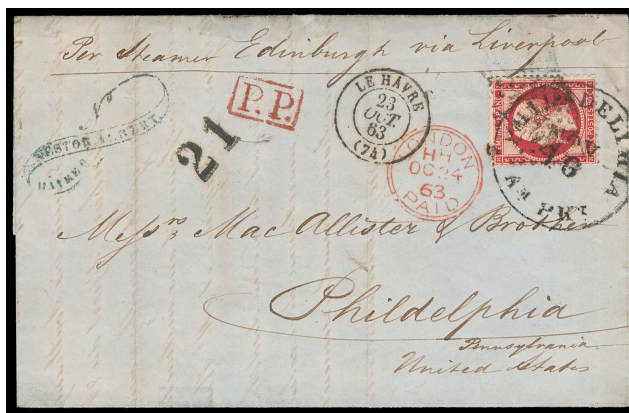 Per Steamer Edinburgh via Liverpool
NESTOR ALBERT
HAVRE
21
P.P.
LE HAVRE
23
OCT.
63
(74)
LONDON
HH
OC 24
63
PAID
PHILADELPHIA
NOV
AM. PKT.
Mess.rs Mac Allister & Brother
Phildelphia
Pennsylvania
United States